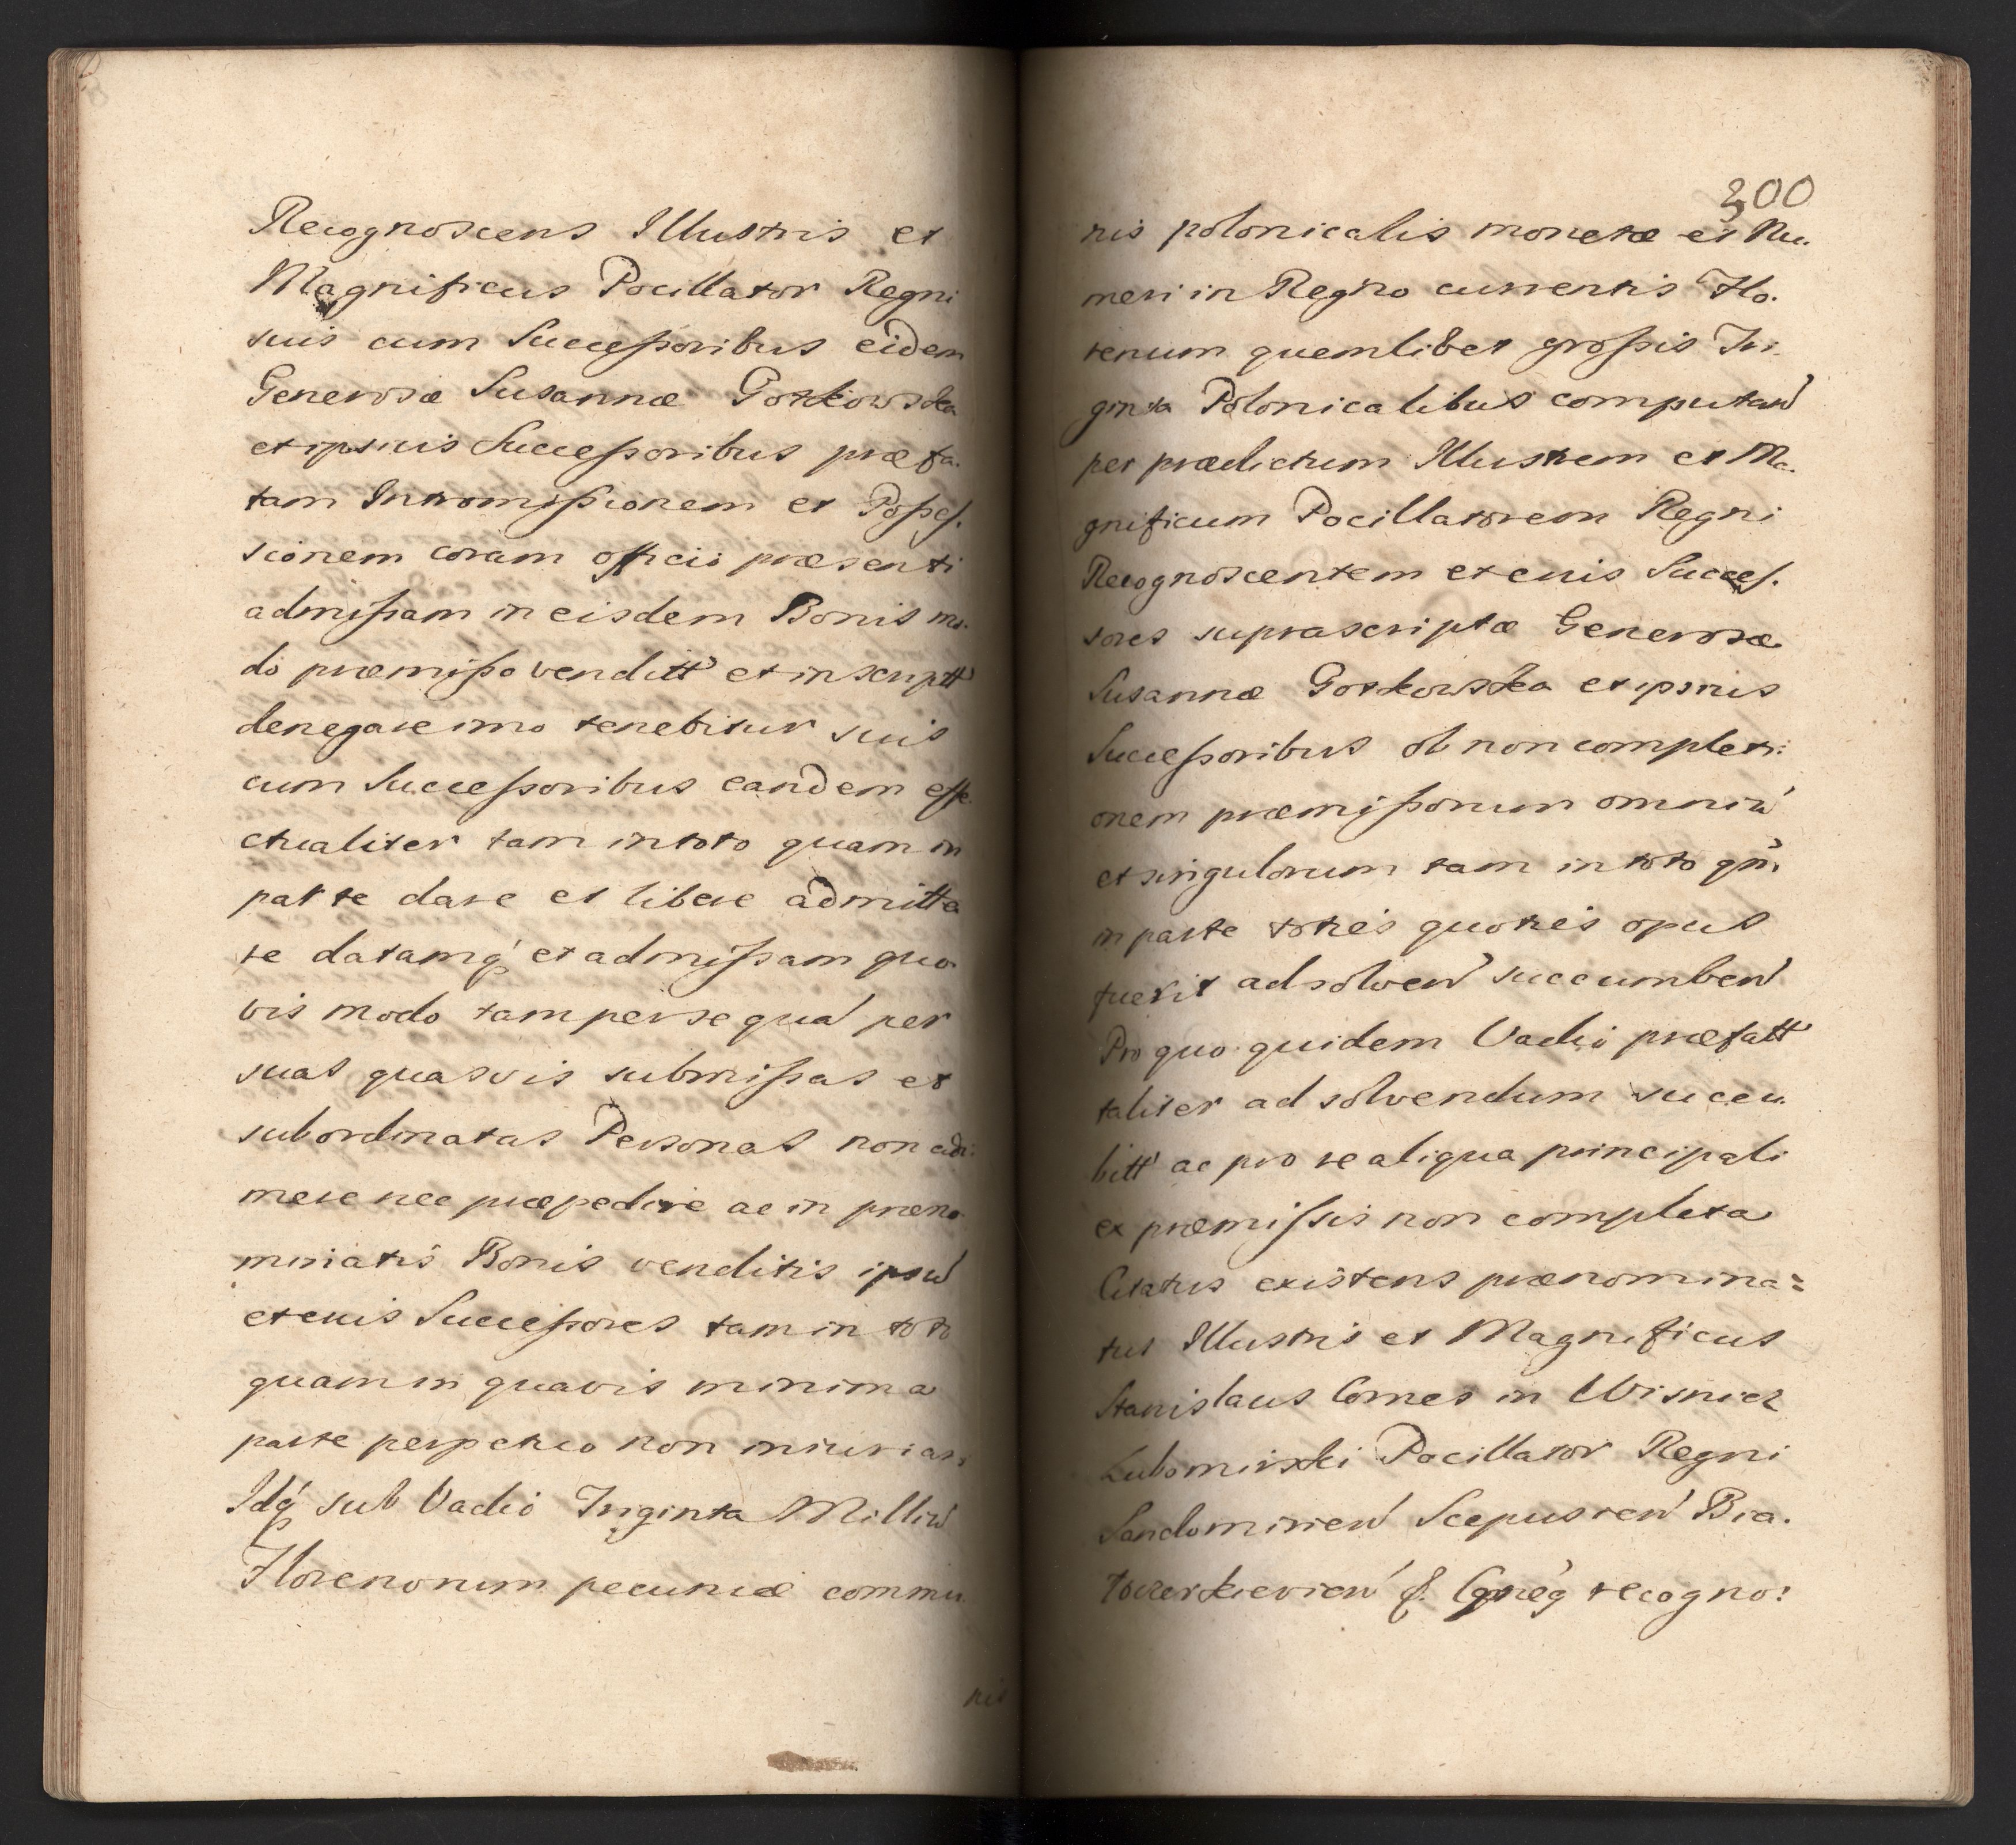 Recognoscens Illustris et
Magnificus Pocillator Regni
suis cum Successoribus eidem
Generosæ Susannæ Gorkowska
et ipsius Successoribus præfa-
tam Intromissionem et Posses-
sionem coram officio præsenti
admissam in eisdem Bonis mo-
do præmisso venditt et inscriptt
denegare imo tenebitur suis
cum Successoribus eandem effe-
ctualiter tam in toto quam in
parte dare et libere admitte
re datamq et admissam quo-
vis modo tam per se qua per
suas quasvis submissas et
subordinatas Personas non adi-
mere nec præpedire ac in præno-
minatis Bonis venditis ipsu
et eius Successores tam in toto
quam in quavis minima
parte perpetuo non iniuriari
Idq sub Vadio Triginta Milliu
Florenorum pecuniæ commu
nis
200
nis polonicalis monetæ et Nu-
meri in Regno currentis Flo-
renum quemlibet grossis Tri-
ginta Polonicalibus computan
per prædictum Illustrem et Ma-
gnificum Pocillatorem Regni
Recognoscentem et eius Succes-
sores suprascriptæ Generosæ
Susannæ Gorkowska et ipsius
Successoribus ob non completi-
onem præmissorum omniu
et singulorum tam in toto qm
in parte toties quoties opus
fuerit ad solven succumben
Pro quo quidem Vadio præfatt
taliter ad solvendum succu-
bitt ac pro re aliqua principali
ex præmissis non completa
Citatus existens prænomina=
tus Illustris et Magnificus
Stanislaus Comes in Wisnicz
Lubomirski Pocillator Regni
Sandomirien Scepusien Bia-
locerkievien & Cgneg recogno: